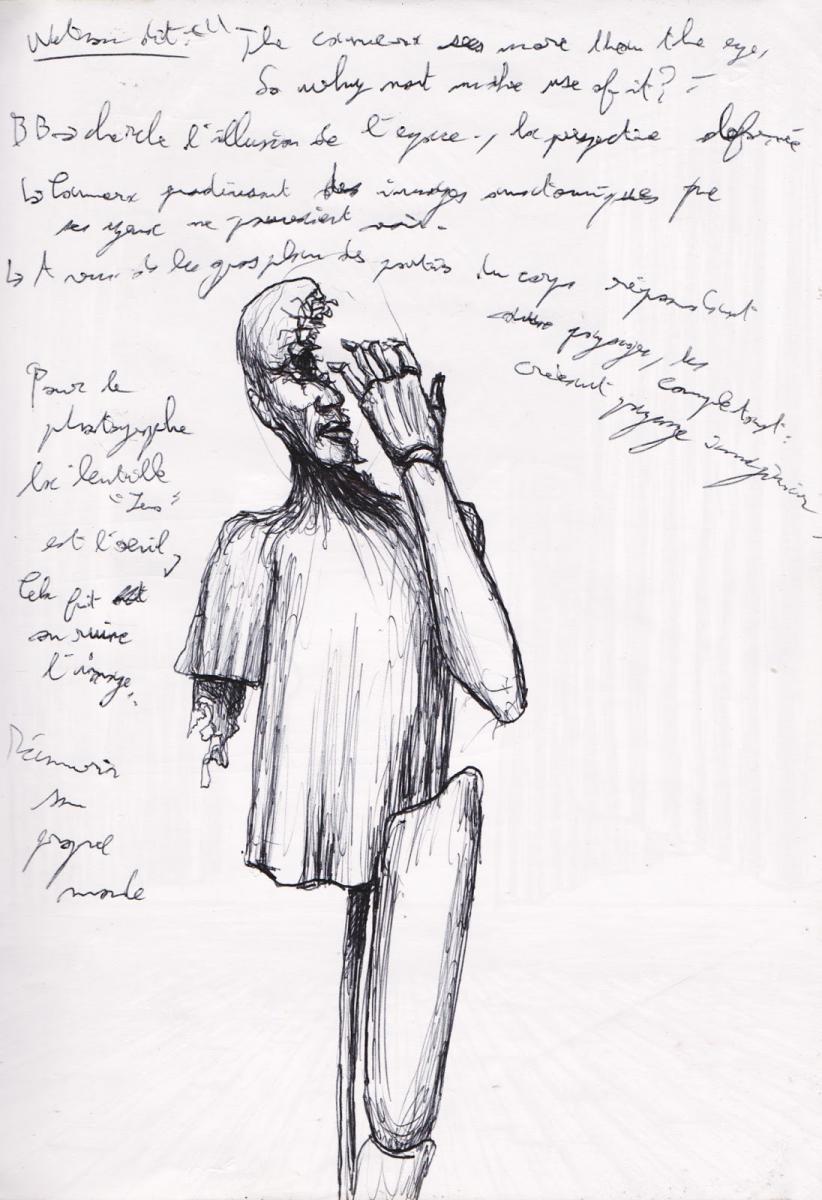 Weston dit : "The camera sees more than the eye,
So why not make use of it? "
BB → cherche l'illusion de l'espace., la perspective déformée
↳ Camera produisant des images anatomiques que
ses yeux ne pouvaient voir.
↳ A vous de les gros plan des parties du corps répondent
aux paysages, les
complétant.
créant paysage imaginaire
Pour le
photographe
la lentille
"Lens"
est l'oeil,
Cela fait
ou ruine
l'image.
Découvrir
son
propre
monde